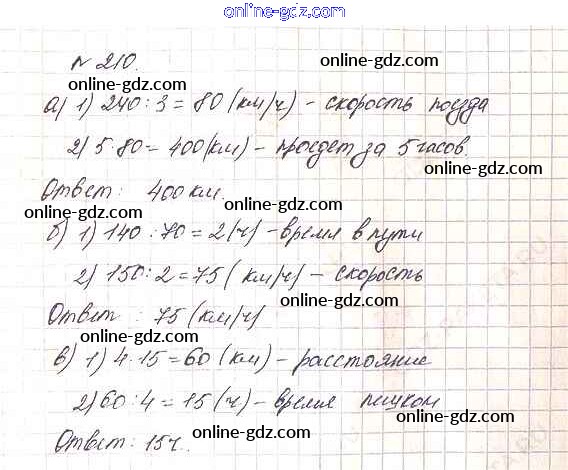 online-gdz.com
№ 210.
online-gdz.com
online-gdz.com
а) 1) 240 : 3 = 80 (км/ч) – скорость поезда
online-gdz.com
online-gdz.com
2) 5·80 = 400 (км) – проедет за 5 часов.
online-gdz.com
Ответ: 400 км.
online-gdz.com
online-gdz.com
б) 1) 140 : 70 = 2 (ч) – время в пути
2) 150 : 2 = 75 (км/ч) – скорость
online-gdz.com
online-gdz.com
Ответ: 75 (км/ч)
online-gdz.com
в) 1) 4·15 = 60 (км) – расстояние
online-gdz.com
2) 60 : 4 = 15 (ч) – время пешком
online-gdz.com
online-gdz.com
Ответ: 15 ч.
online-gdz.com